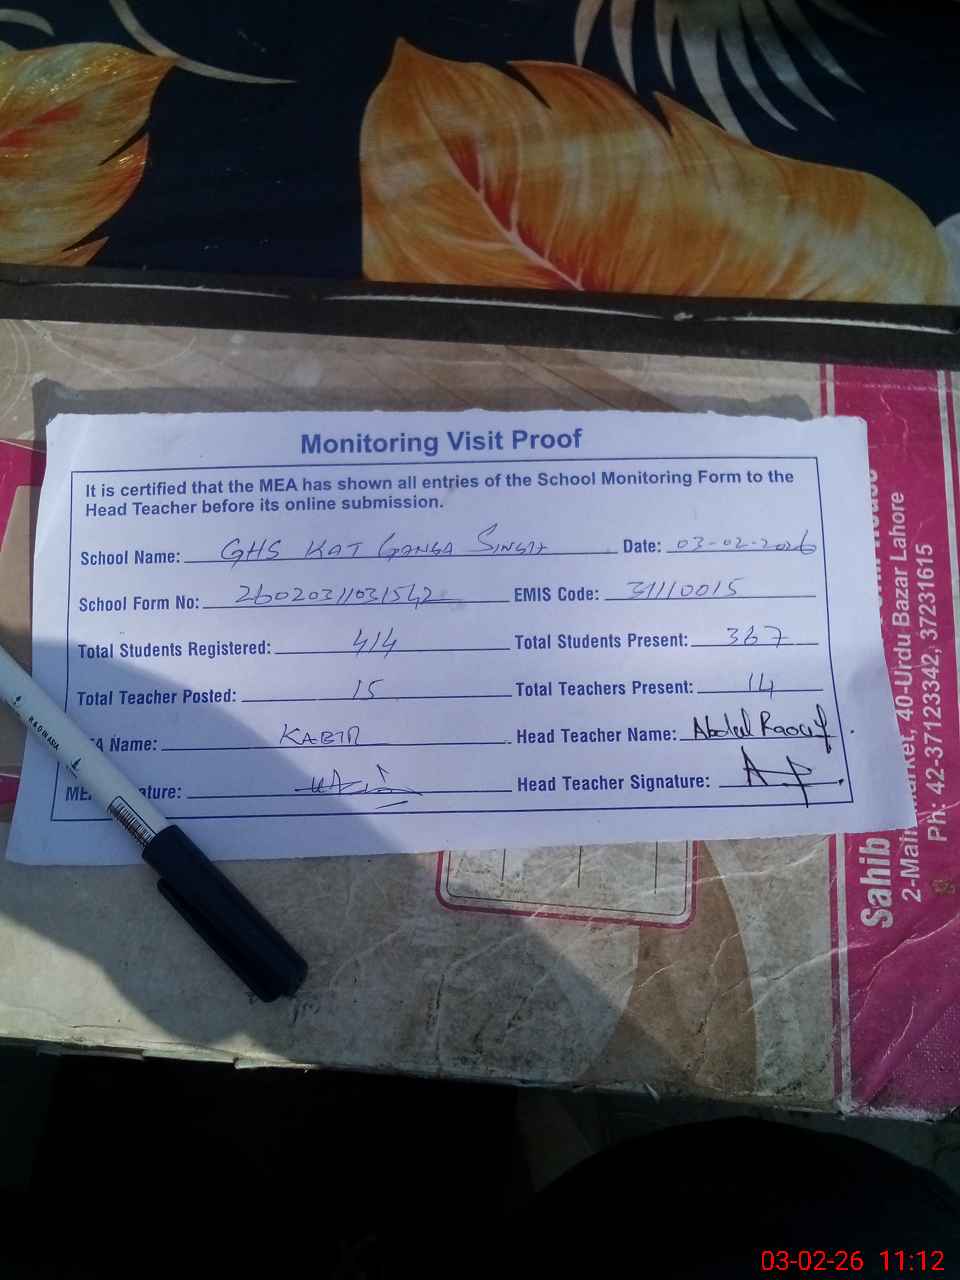 Monitoring Visit Proof
It is certified that the MEA has shown all entries of the School Monitoring Form to the
Head Teacher before its online submission.
School Name: GHS KAT GANGA SINGH Date: 03-02-2026
School Form No: 26020311031542 EMIS Code: 31110015
Total Students Registered: 414 Total Students Present: 367
Total Teacher Posted: 15 Total Teachers Present: 14
A Name: KABIR Head Teacher Name: Abdul Raouf
ME ature: Head Teacher Signature:
Sahib House
2-Main Market, 40-Urdu Bazar Lahore
Ph: 42-37123342, 37231615
03-02-26 11:12